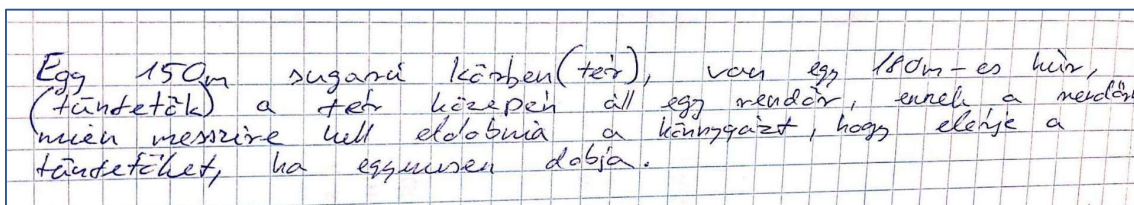 Egy 150m sugarú körben (tér), van egy 180m-es húr,
(tüntetők) a tér közepén áll egy rendőr, ennek a rendőrn
milyen messzire kell eldobnia a könnygázt, hogy elérje a
tüntetőket, ha egyenesen dobja.